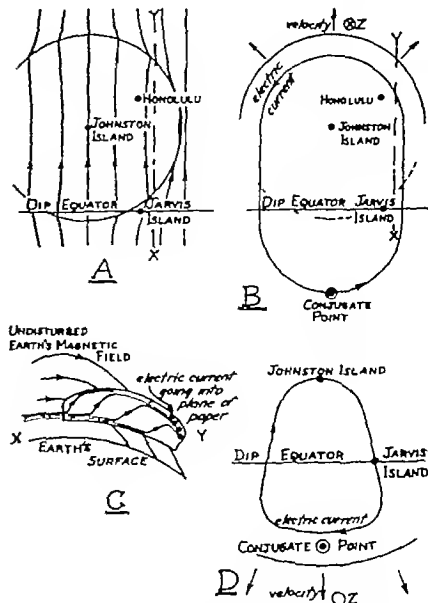 Y
HONOLULU
JOHNSTON
ISLAND
DIP EQUATOR JARVIS
ISLAND
X
A
velocity ⊗Z
Y
electric
current
HONOLULU
JOHNSTON
ISLAND
DIP EQUATOR JARVIS
ISLAND
X
B
CONJUGATE
POINT
UNDISTURBED
EARTH'S MAGNETIC
FIELD
electric current
going into
plane of
paper
X
Y
EARTH'S
SURFACE
C
JOHNSTON ISLAND
DIP EQUATOR JARVIS
ISLAND
electric current
CONJUGATE POINT
velocity ⊙Z
D